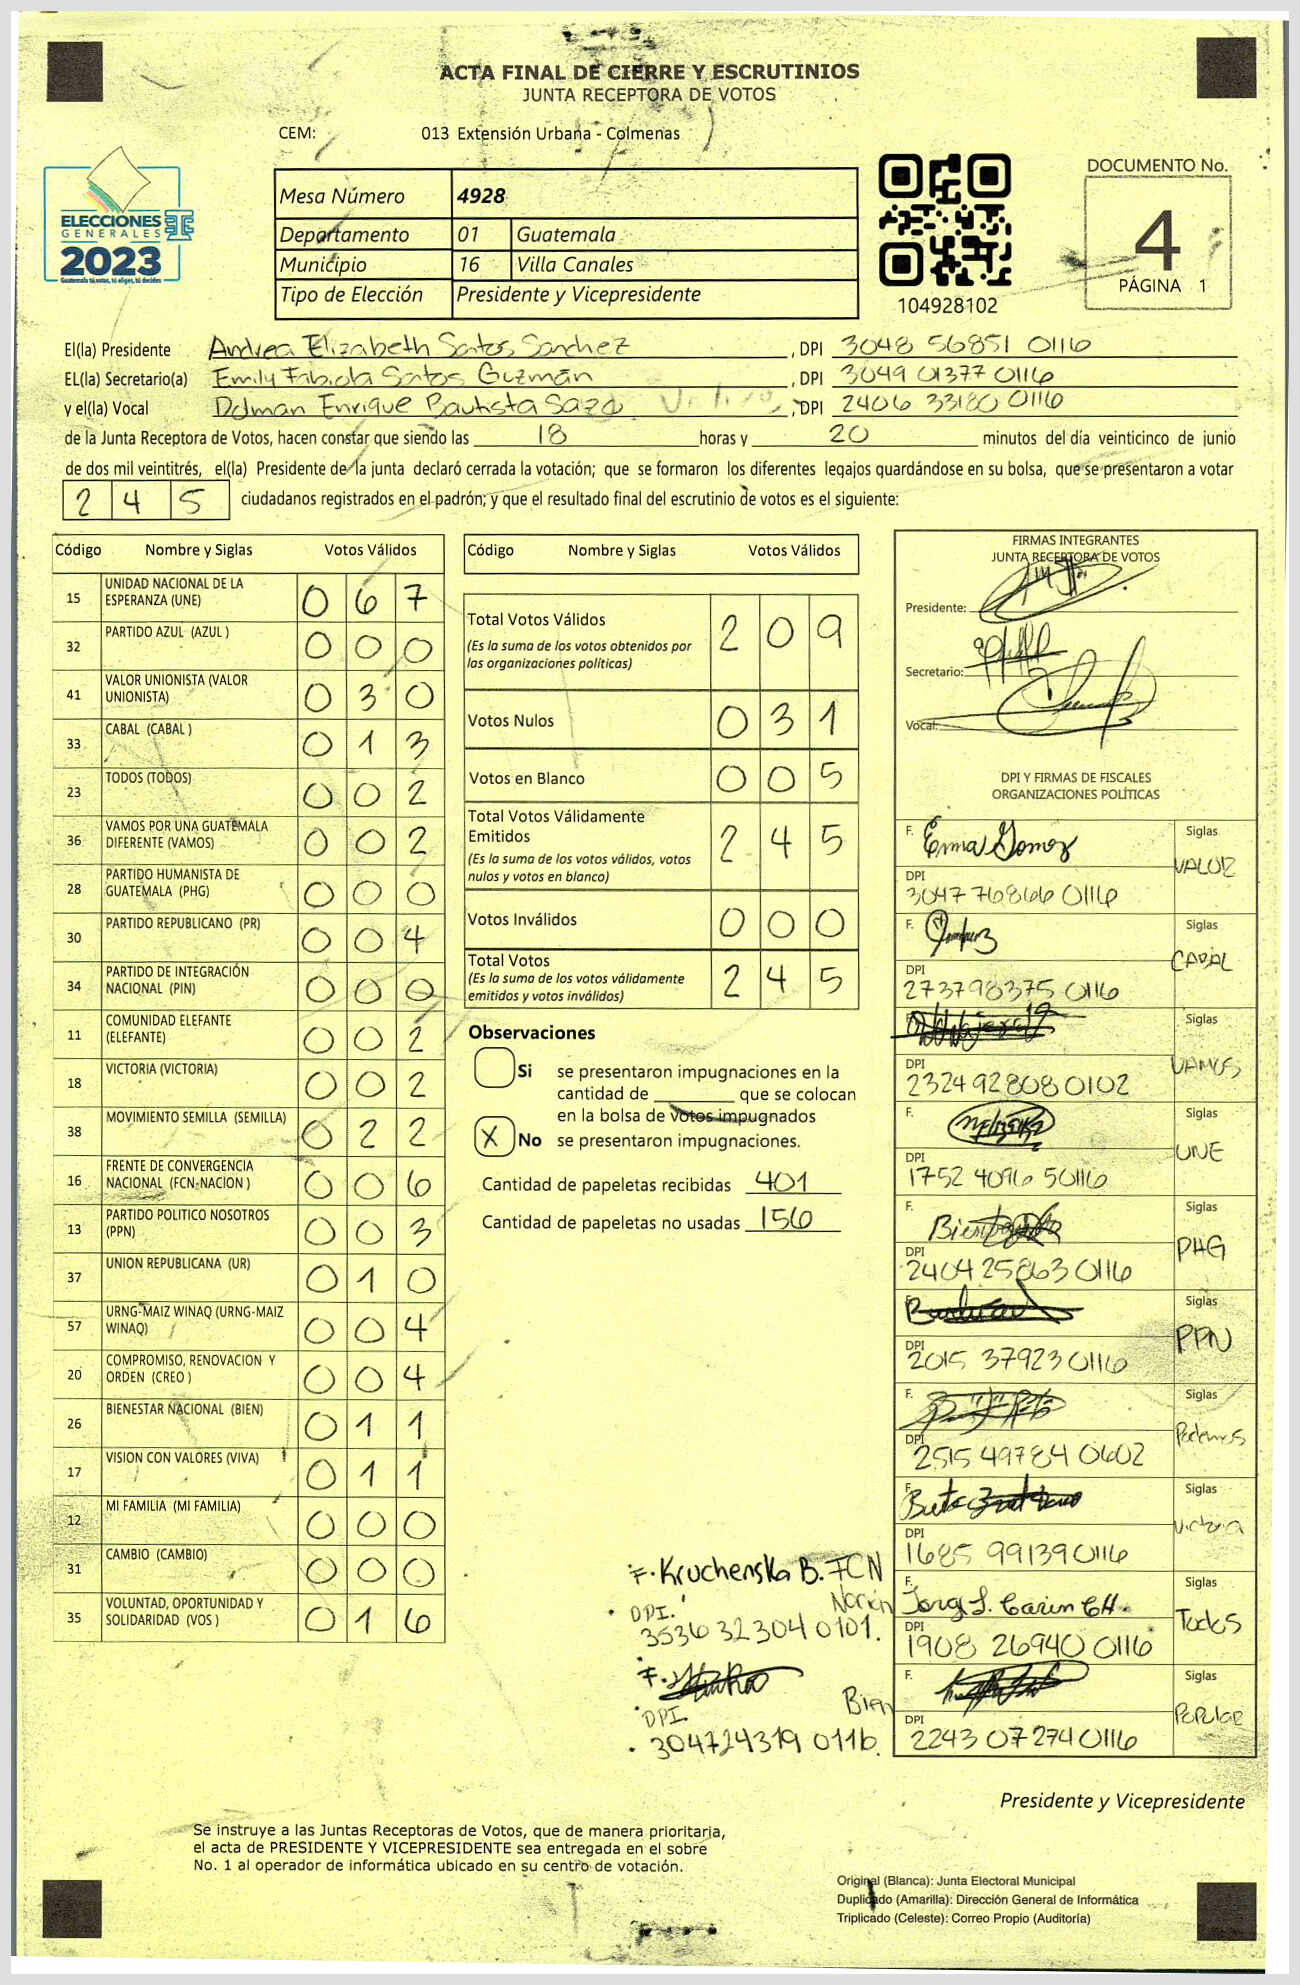 ACTA FINAL DE CIERRE Y ESCRUTINIOS
JUNTA RECEPTORA DE VOTOS
CEM: 013 Extensión Urbana - Colmenas
ELECCIONES
GENERALES
2023
Guatemala tú votas, tú eliges, tú decides
Mesa Número 4928
Departamento 01 Guatemala
Municipio 16 Villa Canales
Tipo de Elección Presidente y Vicepresidente
104928102
DOCUMENTO No.
4
PÁGINA 1
El(la) Presidente Andrea Elizabeth Santos Sanchez , DPI 3048 56851 0116
EL(la) Secretario(a) Emily Fabiola Santos Guzmán , DPI 3049 01377 0116
y el(la) Vocal Dolman Enrique Bautista Sazo , DPI 2406 33180 0116
de la Junta Receptora de Votos, hacen constar que siendo las 18 horas y 20 minutos del día veinticinco de junio
de dos mil veintitrés, el(la) Presidente de la junta declaró cerrada la votación; que se formaron los diferentes legajos guardándose en su bolsa, que se presentaron a votar
245 ciudadanos registrados en el padrón; y que el resultado final del escrutinio de votos es el siguiente:
Código Nombre y Siglas Votos Válidos
15 UNIDAD NACIONAL DE LA ESPERANZA (UNE) 0 6 7
32 PARTIDO AZUL (AZUL ) 0 0 0
41 VALOR UNIONISTA (VALOR UNIONISTA) 0 3 0
33 CABAL (CABAL ) 0 1 3
23 TODOS (TODOS) 0 0 2
36 VAMOS POR UNA GUATEMALA DIFERENTE (VAMOS) 0 0 2
28 PARTIDO HUMANISTA DE GUATEMALA (PHG) 0 0 0
30 PARTIDO REPUBLICANO (PR) 0 0 4
34 PARTIDO DE INTEGRACIÓN NACIONAL (PIN) 0 0 0
11 COMUNIDAD ELEFANTE (ELEFANTE) 0 0 2
18 VICTORIA (VICTORIA) 0 0 2
38 MOVIMIENTO SEMILLA (SEMILLA) 0 2 2
16 FRENTE DE CONVERGENCIA NACIONAL (FCN-NACION ) 0 0 6
13 PARTIDO POLITICO NOSOTROS (PPN) 0 0 3
37 UNION REPUBLICANA (UR) 0 1 0
57 URNG-MAIZ WINAQ (URNG-MAIZ WINAQ) 0 0 4
20 COMPROMISO, RENOVACION Y ORDEN (CREO ) 0 0 4
26 BIENESTAR NACIONAL (BIEN) 0 1 1
17 VISION CON VALORES (VIVA) 0 1 1
12 MI FAMILIA (MI FAMILIA) 0 0 0
31 CAMBIO (CAMBIO) 0 0 0
35 VOLUNTAD, OPORTUNIDAD Y SOLIDARIDAD (VOS ) 0 1 6
Código Nombre y Siglas Votos Válidos
Total Votos Válidos 2 0 9
(Es la suma de los votos obtenidos por
las organizaciones políticas)
Votos Nulos 0 3 1
Votos en Blanco 0 0 5
Total Votos Válidamente
Emitidos 2 4 5
(Es la suma de los votos válidos, votos
nulos y votos en blanco)
Votos Inválidos 0 0 0
Total Votos 2 4 5
(Es la suma de los votos válidamente
emitidos y votos inválidos)
Observaciones
Si se presentaron impugnaciones en la
cantidad de ________ que se colocan
en la bolsa de votos impugnados
X No se presentaron impugnaciones.
Cantidad de papeletas recibidas 401
Cantidad de papeletas no usadas 156
F. Kruchenska B. FCN
Nación
DPI.
3536 32304 0101.
F.
Bien
DPI.
304724319 0116.
FIRMAS INTEGRANTES
JUNTA RECEPTORA DE VOTOS
Presidente:
Secretario:
Vocal:
DPI Y FIRMAS DE FISCALES
ORGANIZACIONES POLÍTICAS
F. Erma Gomez Siglas
VALOR
DPI
3047 76866 0116
F. Siglas
CABAL
DPI
2737 98375 0116
F. Siglas
VAMOS
DPI
2324 92808 0102
F. Siglas
UNE
DPI
1752 4096 50116
F. Siglas
PHG
DPI
2404 25863 0116
F. Siglas
PPN
DPI
2015 37923 0116
F. Siglas
Podemos
DPI
2515 49784 0602
F. Siglas
Victoria
DPI
1685 99139 0116
F. Siglas
Todos
DPI
1908 26940 0116
F. Siglas
Popular
DPI
2243 07274 0116
Presidente y Vicepresidente
Se instruye a las Juntas Receptoras de Votos, que de manera prioritaria,
el acta de PRESIDENTE Y VICEPRESIDENTE sea entregada en el sobre
No. 1 al operador de informática ubicado en su centro de votación.
Original (Blanca): Junta Electoral Municipal
Duplicado (Amarilla): Dirección General de Informática
Triplicado (Celeste): Correo Propio (Auditoría)